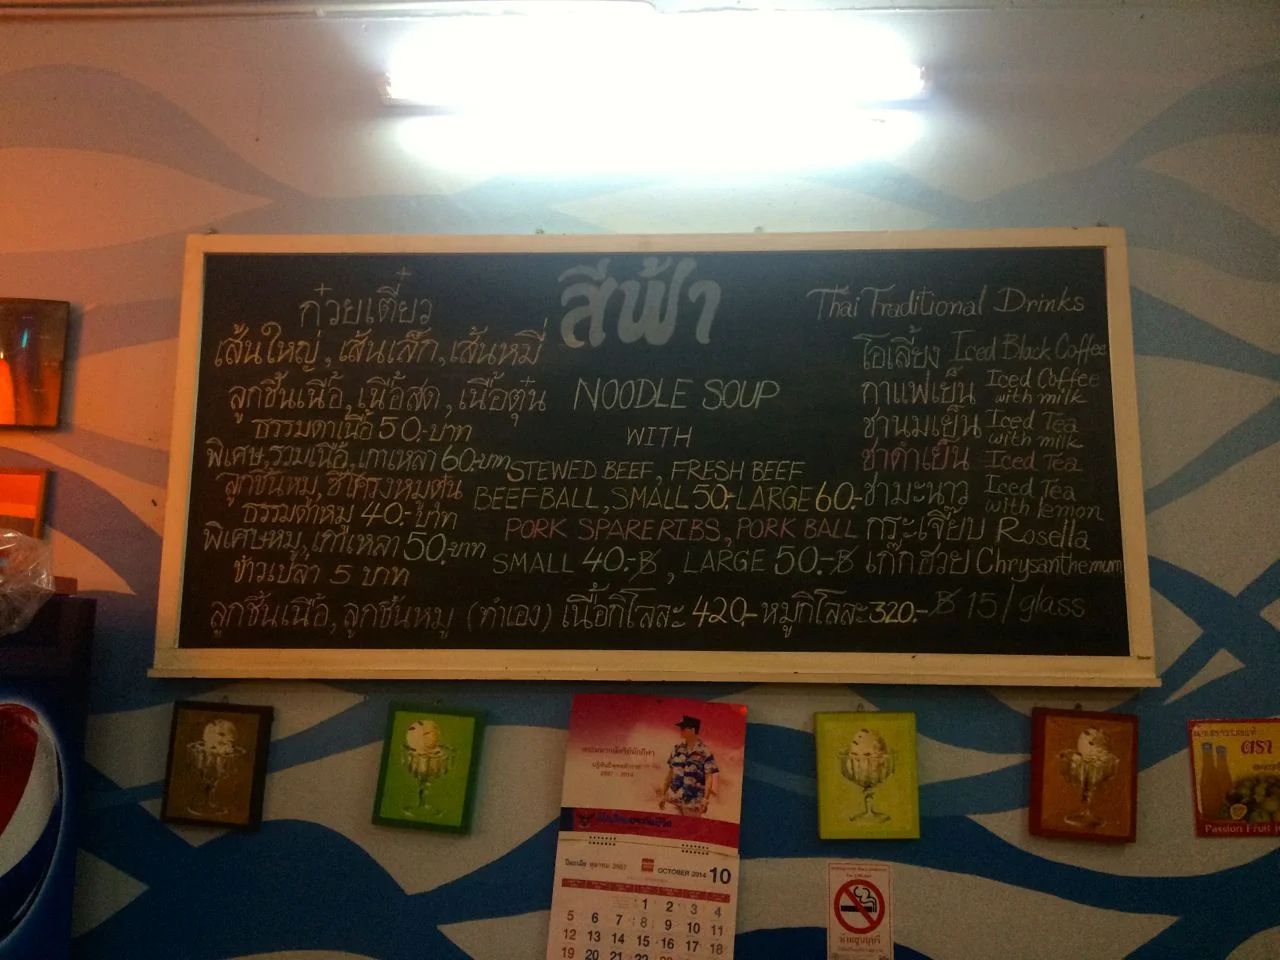 สีฟ้า
ก๋วยเตี๋ยว
เส้นใหญ่, เส้นเล็ก, เส้นหมี่
ลูกชิ้นเนื้อ, เนื้อสด, เนื้อตุ๋น
ธรรมดาเนื้อ 50.-บาท
พิเศษ, รวมเนื้อ, เกาเหลา 60.-บาท
ลูกชิ้นหมู, ซี่โครงหมูตุ๋น
ธรรมดาหมู 40.-บาท
พิเศษหมู, เกาเหลา 50.-บาท
ข้าวเปล่า 5 บาท
NOODLE SOUP
WITH
STEWED BEEF, FRESH BEEF
BEEFBALL, SMALL 50.- LARGE 60.-
PORK SPARERIBS, PORK BALL
SMALL 40.-฿, LARGE 50.-฿
Thai Traditional Drinks
โอเลี้ยง Iced Black Coffee
กาแฟเย็น Iced Coffee with milk
ชานมเย็น Iced Tea with milk
ชาดำเย็น Iced Tea
ชามะนาว Iced Tea with lemon
กระเจี๊ยบ Rosella
เก๊กฮวย Chrysanthemum
฿ 15/glass
ลูกชิ้นเนื้อ, ลูกชิ้นหมู (ทำเอง) เนื้อกิโลละ 420.- หมูกิโลละ 320.-
2014
ตุลาคม 2557
OCTOBER 2014 10
1 2 3 4
5 6 7 8 9 10 11
12 13 14 15 16 17 18
19 20 21 22
ตรา
Passion Fruit